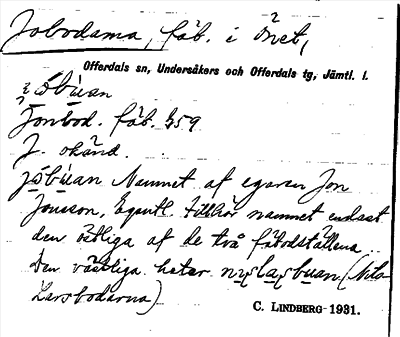 Jobodarna, fäb. i Önet,
Offerdals sn, Undersåkers och Offerdals tg, Jämtl. l.
jo̱bu̱an
Jonbod. fäb. 859
J. okänd.
jo̱bu̱an Namnet af egaren Jon
Jonsson. Egentl. tillhör namnet endast
den östliga af de två fäbodställena.
Den västliga heter nıslasbuan (Nils-
Larsbodarna)
C. LINDBERG 1931.